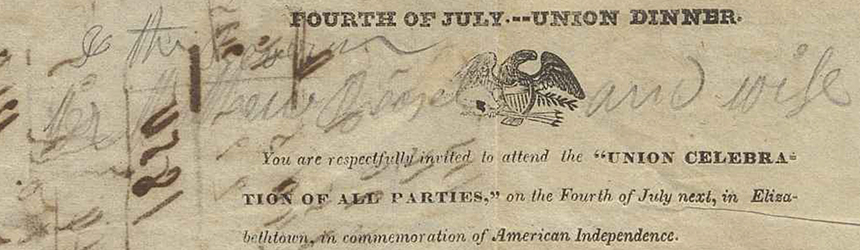 FOURTH OF JULY.--UNION DINNER.
and wife
1820
You are respectfully invited to attend the "UNION CELEBRA=
TION OF ALL PARTIES," on the Fourth of July next, in Eliza-
bethtown, in commemoration of American Independence.